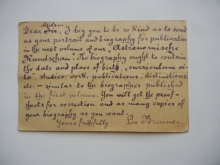 Dear Sir, I beg you to be so kind as to send
us your portrait and biography for publication
in the next volume of our "Astronomische
Rundschau". The biography ought to contain
the date and place of birth, curriculum vi-
tae, studies, work, publications, distinctions
etc – similar to the biographies published
in the first volume. You will get the proof
sheets for correction and as many copies of
your biography as you want.
Yours faithfully
Leo Brenner